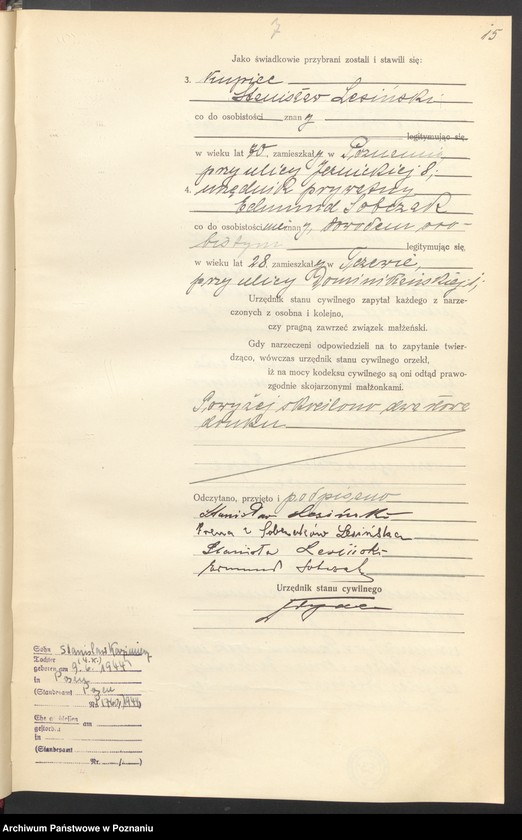 7
15
Jako świadkowie przybrani zostali i stawili się:
3. Kupiec
Stanisław Lesiński
co do osobistości znany
legitymując się,
w wieku lat 40, zamieszkały w Poznaniu
przy ulicy 8,
4. urzędnik prywatny
Edmund Sobczak
co do osobistości nieznany, dowodem oso-
bistym legitymując się,
w wieku lat 28, zamieszkały w
przy ulicy Dominikańskiej
Urzędnik stanu cywilnego zapytał każdego z narze-
czonych z osobna i kolejno,
czy pragną zawrzeć związek małżeński.
Gdy narzeczeni odpowiedzieli na to zapytanie twier-
dząco, wówczas urzędnik stanu cywilnego orzekł,
iż na mocy kodeksu cywilnego są oni odtąd prawo-
zgodnie skojarzonymi małżonkami.
Powyżej skreślono dwa słowa
druku.
Odczytano, przyjęto i podpisano
Stanisław Lesiński
z Sobczaków Lesińska
Stanisław Lesiński
Edmund Sobczak
Urzędnik stanu cywilnego
Sohn Stanislaw Kazimierz
Tochter
geboren am 9.6.1944
in Posen
(Standesamt Posen
Nr. /1944)
Ehe geschlossen am
gestorben
in
(Standesamt
Nr. /
Archiwum Państwowe w Poznaniu